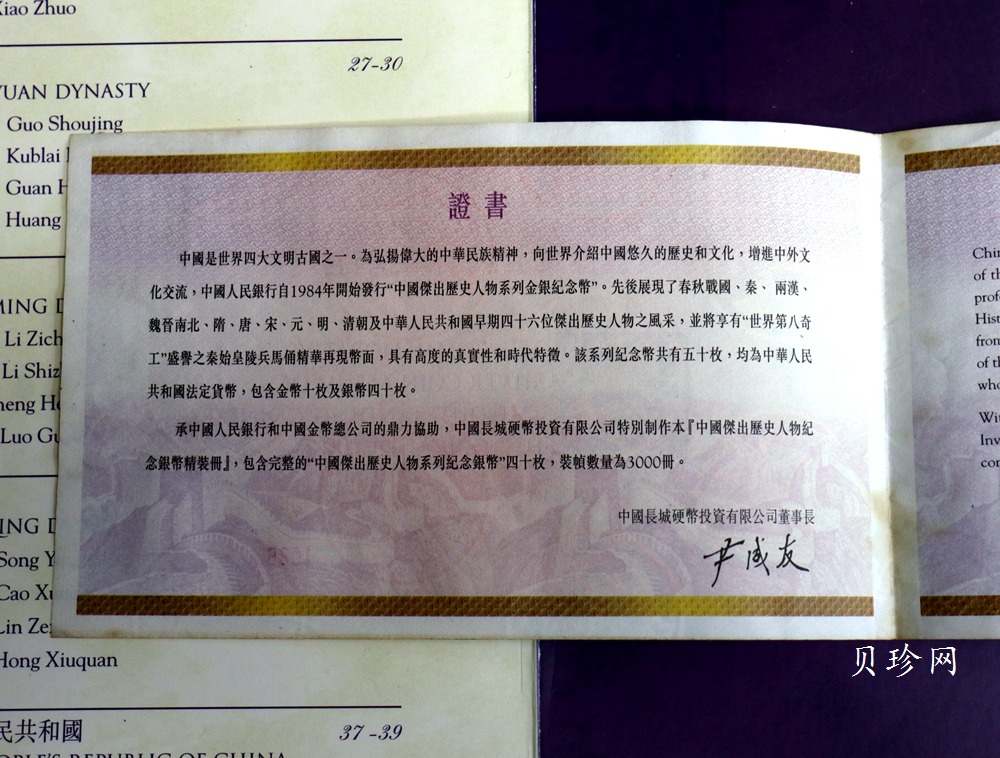 Xiao Zhuo
27-30
YUAN DYNASTY
Guo Shoujing
Kublai
Guan
Huang
MING
Li Zich
Li Shiz
Luo Gu
Song Y
Cao Xu
Lin Ze
Hong Xiuquan
民共和國
37-39
PEOPLE'S REPUBLIC OF CHINA
證書
中國是世界四大文明古國之一。為弘揚偉大的中華民族精神，向世界介紹中國悠久的歷史和文化，增進中外文
化交流，中國人民銀行自1984年開始發行“中國傑出歷史人物系列金銀紀念幣”。先後展現了春秋戰國、秦、兩漢、
魏晉南北、隋、唐、宋、元、明、清朝及中華人民共和國早期四十六位傑出歷史人物之風采，並將享有“世界第八奇
工”盛譽之秦始皇陵兵馬俑精華再現幣面，具有高度的真實性和時代特徵。該系列紀念幣共有五十枚，均為中華人民
共和國法定貨幣，包含金幣十枚及銀幣四十枚。
承中國人民銀行和中國金幣總公司的鼎力協助，中國長城硬幣投資有限公司特別制作本『中國傑出歷史人物紀
念銀幣精裝冊』，包含完整的“中國傑出歷史人物系列紀念銀幣”四十枚，裝幀數量為3000冊。
中國長城硬幣投資有限公司董事長
尹成友
Chi
of th
prof
Hist
from
of th
who
Wit
Inv
con
贝珍网